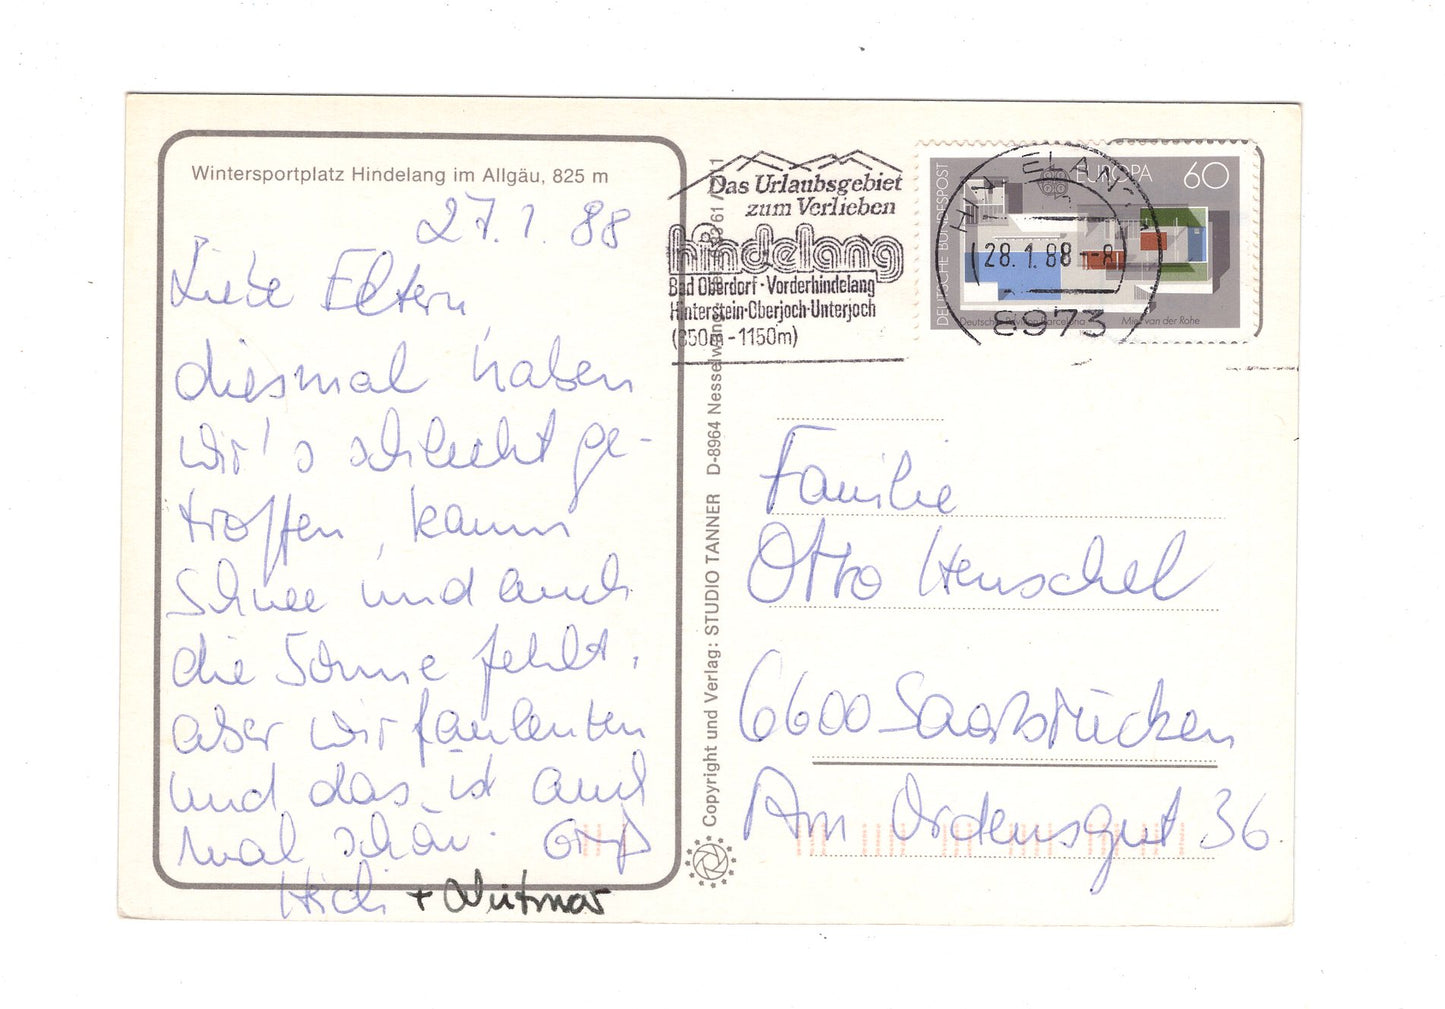 Wintersportplatz Hindelang im Allgäu, 825 m
27.1.88
Liebe Eltern,
diesmal haben
wir's schlecht ge-
troffen, kaum
Schnee und auch
die Sonne fehlt.
aber wir faulenzen
und das ist auch
mal schön. Gruß
Heidi + Dietmar
Copyright und Verlag: STUDIO TANNER D-8964 Nesselwang
Das Urlaubsgebiet
zum Verlieben
hindelang
Bad Oberdorf·Vorderhindelang
Hinterstein·Oberjoch·Unterjoch
(850m-1150m)
HINDELANG
28.1.88-8
8973
DEUTSCHE BUNDESPOST
EUROPA 60
Deutscher Pavillon Barcelona Mies van der Rohe
Familie
Otto Henschel
6600 Saarbrücken
Am Ordensgut 36